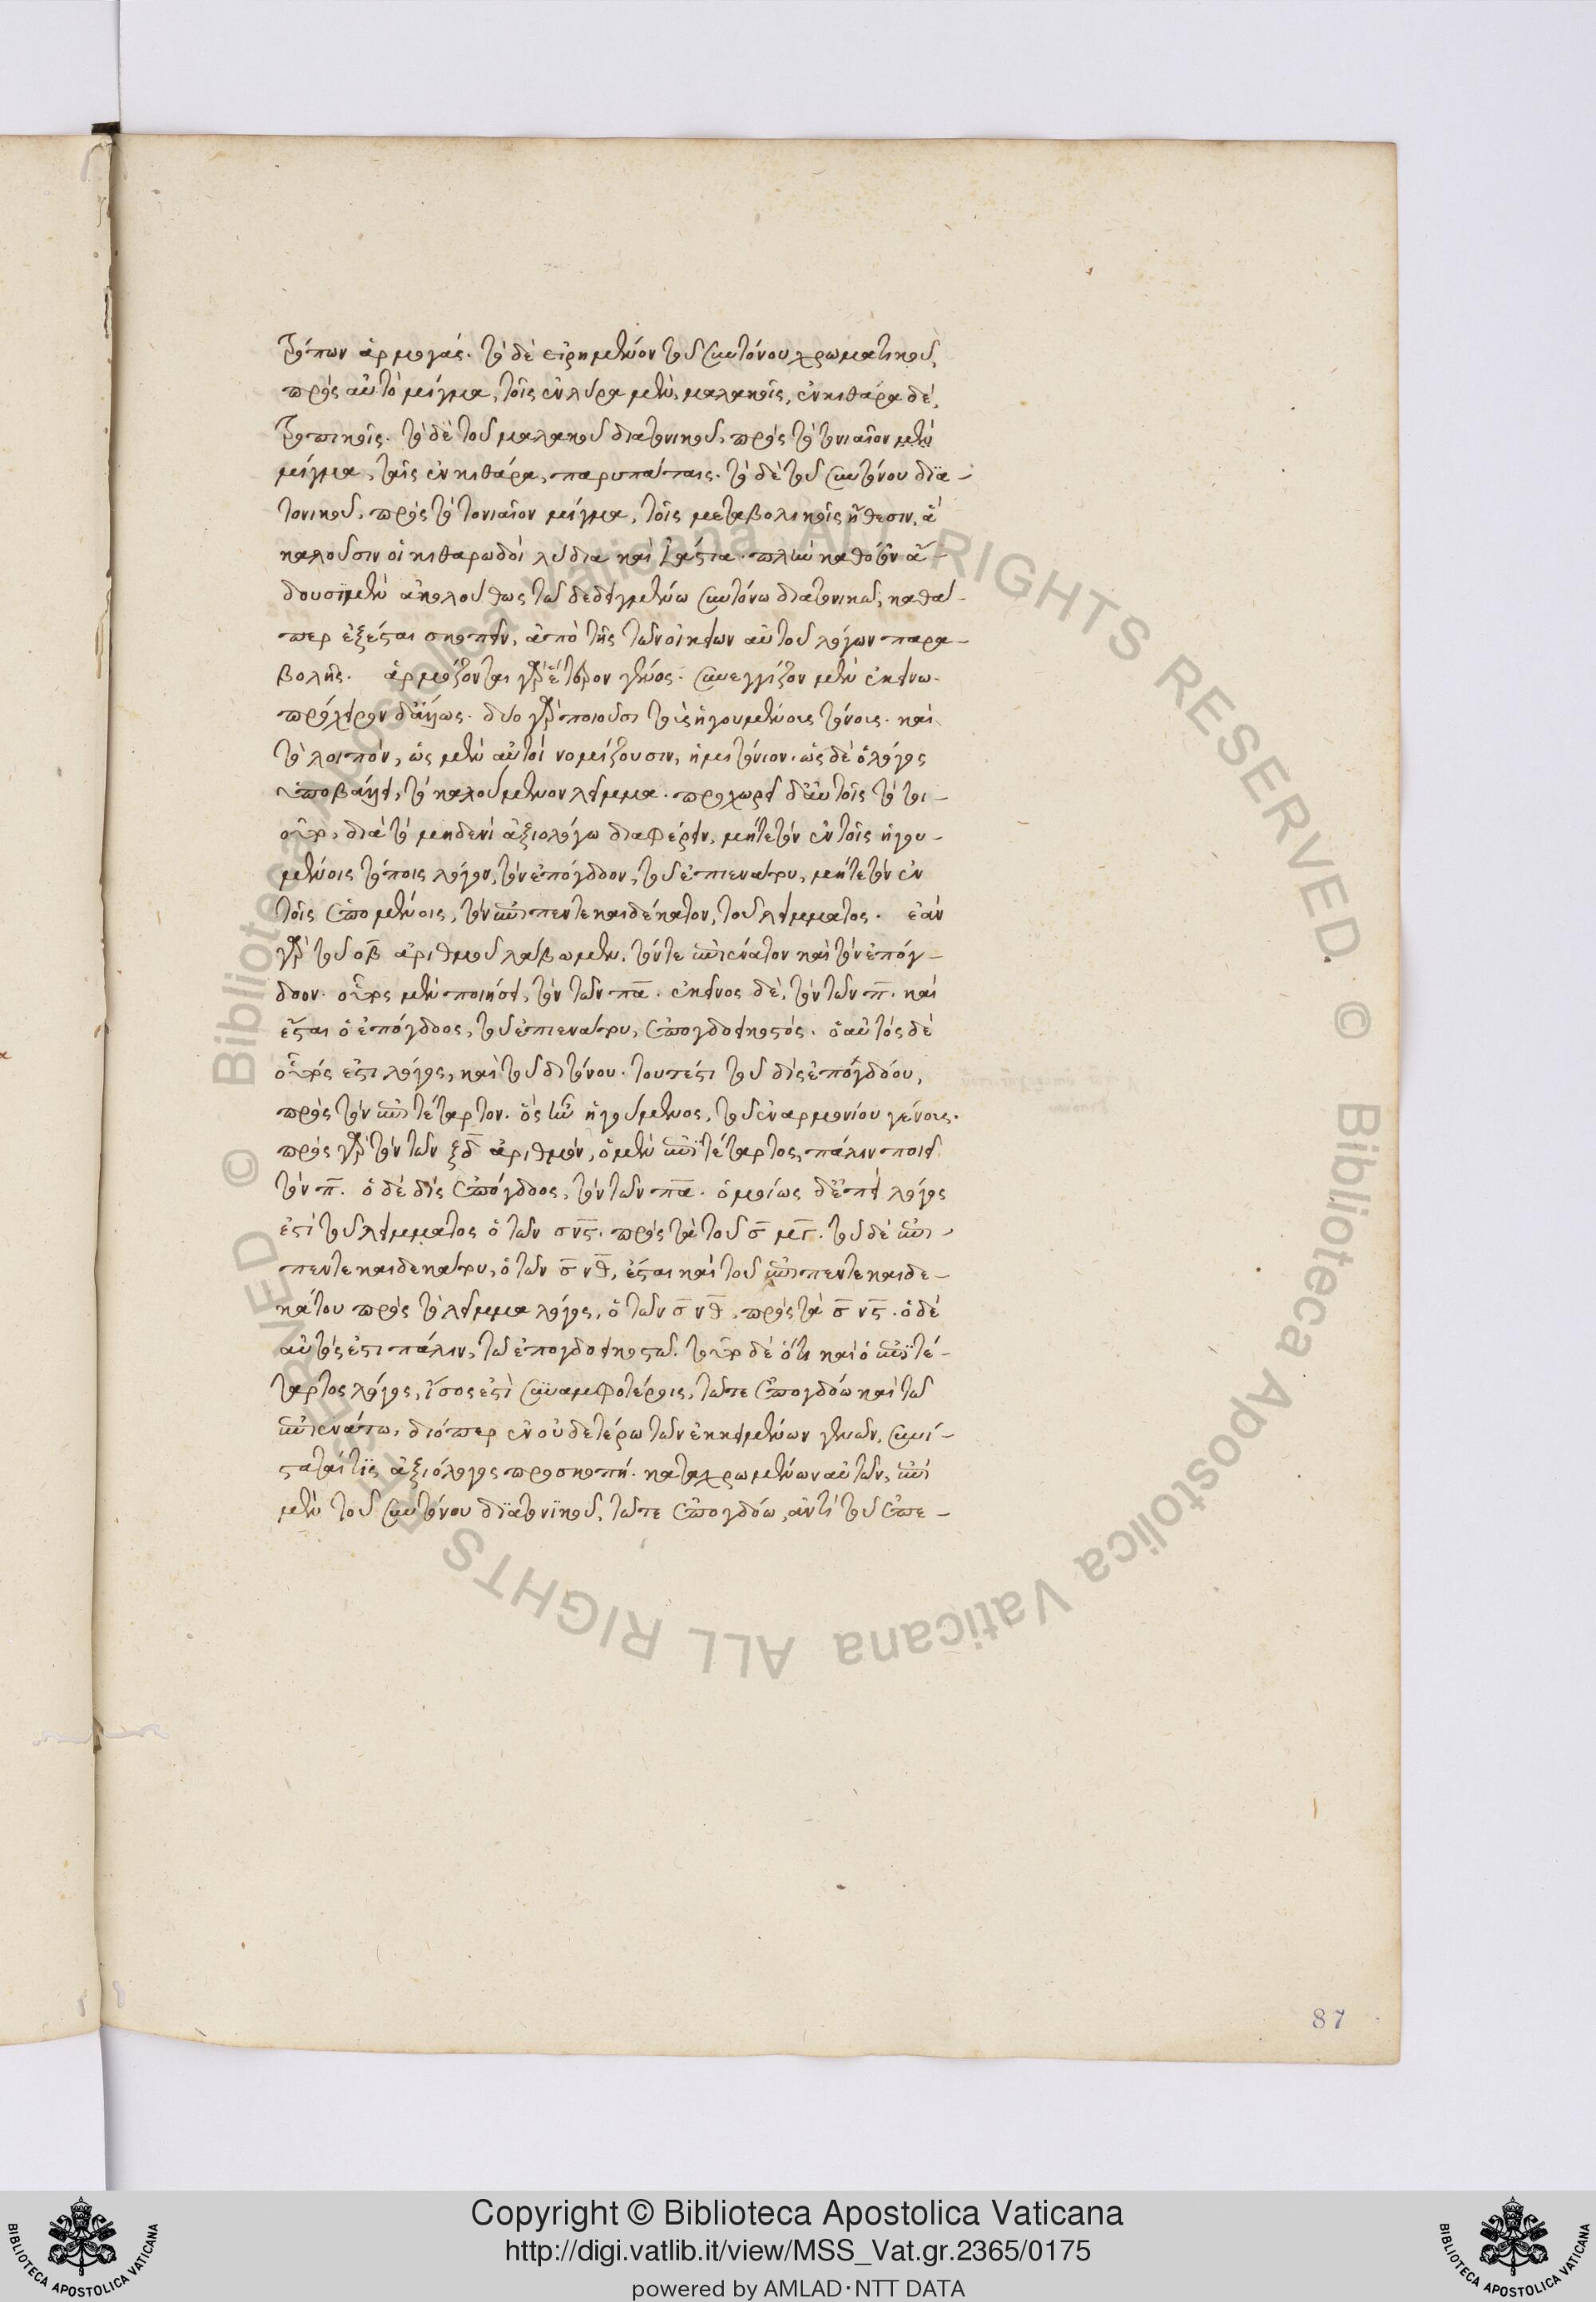 τρόπων ἁρμογάς. τὸ δὲ εἰρημένον τοῦ συντόνου χρωματικοῦ,
πρὸς αὐτὸ μίγμα, τοῖς ἐν λύρα μὲν, μαλακοῖς, ἐν κιθάρα δὲ,
τροπικοῖς. τὸ δὲ τοῦ μαλακοῦ διατονικοῦ, πρὸς τὸ τονιαῖον μὲν
μίγμα, ταῖς ἐν κιθάρα, παρυπάταις. τὸ δὲ τοῦ συντόνου δια-
τονικοῦ, πρὸς τὸ τονιαῖον μίγμα, τοῖς μεταβολικοῖς ἤθεσιν, ἃ
καλοῦσιν οἱ κιθαρωδοὶ λύδια καὶ ἰάστια. πλὴν καθόσον ἄ-
δουσι μὲν ἀκολούθως τῶ δεδειγμένω συντόνω διατονικῶ, καθά-
περ ἐξέσται σκοπεῖν, ἀπὸ τῆς τῶν οἰκείων αὐτοῦ λόγων παρα-
βολῆς. ἁρμόζονται γὰρ ἕτερον γένος. συνεγγίζον μὲν ἐκείνω.
πρόχειρον δἄλλως. δύο γὰρ ποιοῦσι τοὺς ἡγουμένους τόνους. καὶ
τὸ λοιπὸν, ὡς μὲν αὐτοὶ νομίζουσιν, ἡμιτόνιον. ὡς δὲ ὁ λόγος
ὑποβάλλει, τὸ καλούμενον λεῖμμα. προχωρεῖ δ' αὐτοῖς τὸ τοι-
οῦτο, διὰ τὸ μηδενὶ ἀξιολόγω διαφέρειν, μήτε τὸν ἐν τοῖς ἡγου-
μένοις τόποις λόγον, τὸν ἐπόγδοον, τοῦ ἐπιενάτου, μήτε τὸν ἐν
τοῖς ἑπομένοις, τὸν ἐπιπεντεκαιδέκατον, τοῦ λείμματος. ἐὰν
γὰρ τοῦ οβ ἀριθμοῦ λάβωμεν, τόν τε ἐπιένατον καὶ τὸν ἐπόγ-
δοον. οὗτος μὲν ποιήσει, τὸν τῶν πα. ἐκεῖνος δὲ, τὸν τῶν π. καὶ
ἔσται ὁ ἐπόγδοος, τοῦ ἐπιενάτου, ἐπογδοηκοστός. ὁ αὐτὸς δὲ
οὗτός ἐστι λόγος, καὶ τοῦ διτόνου. τουτέστι τοῦ δὶς ἐπογδόου,
πρὸς τὸν ἐπιτέταρτον. ὃς ἦν ἡγούμενος, τοῦ ἐναρμονίου γένους.
πρὸς γὰρ τὸν τῶν ξδ ἀριθμὸν, ὁ μὲν ἐπιτέταρτος, πάλιν ποιεῖ
τὸν π. ὁ δὲ δὶς ἐπόγδοος, τὸν τῶν πα. ὁμοίως δἐπεὶ λόγος
ἐστὶ τοῦ λείμματος ὁ τῶν σνς. πρὸς τὰ τοῦ σ μγ. τοῦ δὲ ἐπι-
πεντεκαιδεκάτου, ὁ τῶν σ νθ, ἔσται καὶ τοῦ ἐπιπεντεκαιδε-
κάτου πρὸς τὸ λεῖμμα λόγος, ὁ τῶν σ νθ, πρὸς τὰ σ νς. ὁ δὲ
αὐτός ἐστι πάλιν, τῶ ἐπογδοηκοστῶ. τοῦτο δὲ ὅτι καὶ ὁ ἐπιτέ-
ταρτος λόγος, ἴσος ἐστὶ συναμφοτέροις, τῶτε ἐπογδόω καὶ τῶ
ἐπιενάτω, διόπερ ἐν οὐδετέρω τῶν ἐκκειμένων γενῶν, συνί-
σταταί τις ἀξιόλογος προσκοπή. καταχρωμένων αὐτῶν, ἐπὶ
μὲν τοῦ συντόνου διατονικοῦ, τῶτε ἐπογδόω, ἀντὶ τοῦ ἐπιε-
87
Copyright © Biblioteca Apostolica Vaticana
http://digi.vatlib.it/view/MSS_Vat.gr.2365/0175
powered by AMLAD·NTT DATA
BIBLIOTECA APOSTOLICA VATICANA
BIBLIOTECA APOSTOLICA VATICANA
© Biblioteca Apostolica Vaticana ALL RIGHTS RESERVED
© Biblioteca Apostolica Vaticana ALL RIGHTS RESERVED